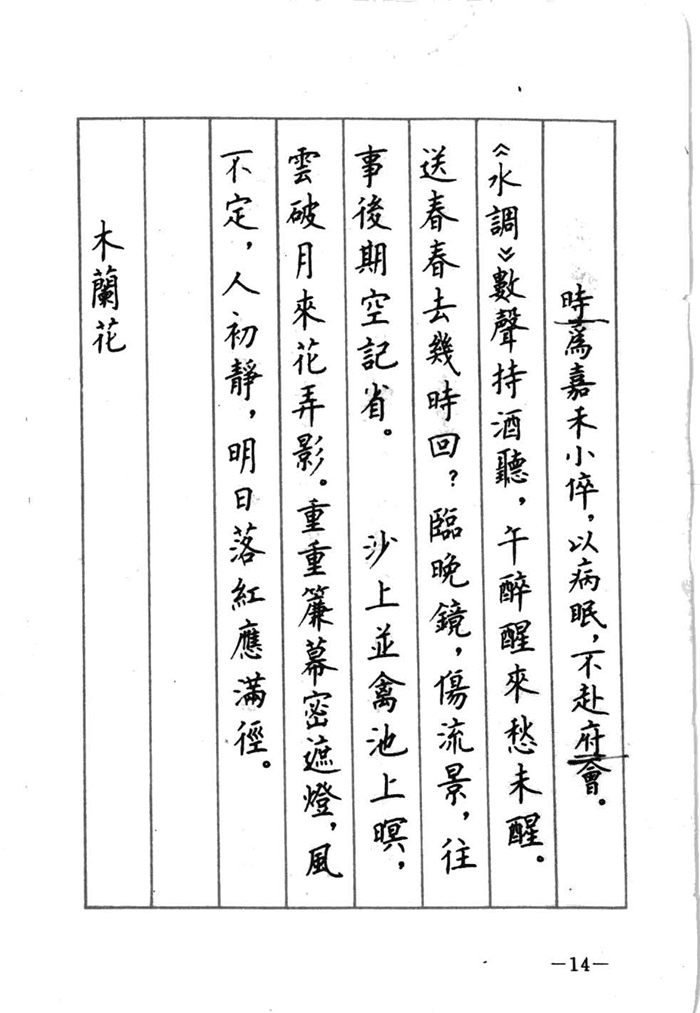 時爲嘉禾小倅，以病眠，不赴府會。
《水調》數聲持酒聽，午醉醒來愁未醒。
送春春去幾時回？臨晚鏡，傷流景，往
事後期空記省。　　沙上並禽池上暝，
雲破月來花弄影。重重簾幕密遮燈，風
不定，人初靜，明日落紅應滿徑。
木蘭花
—14—